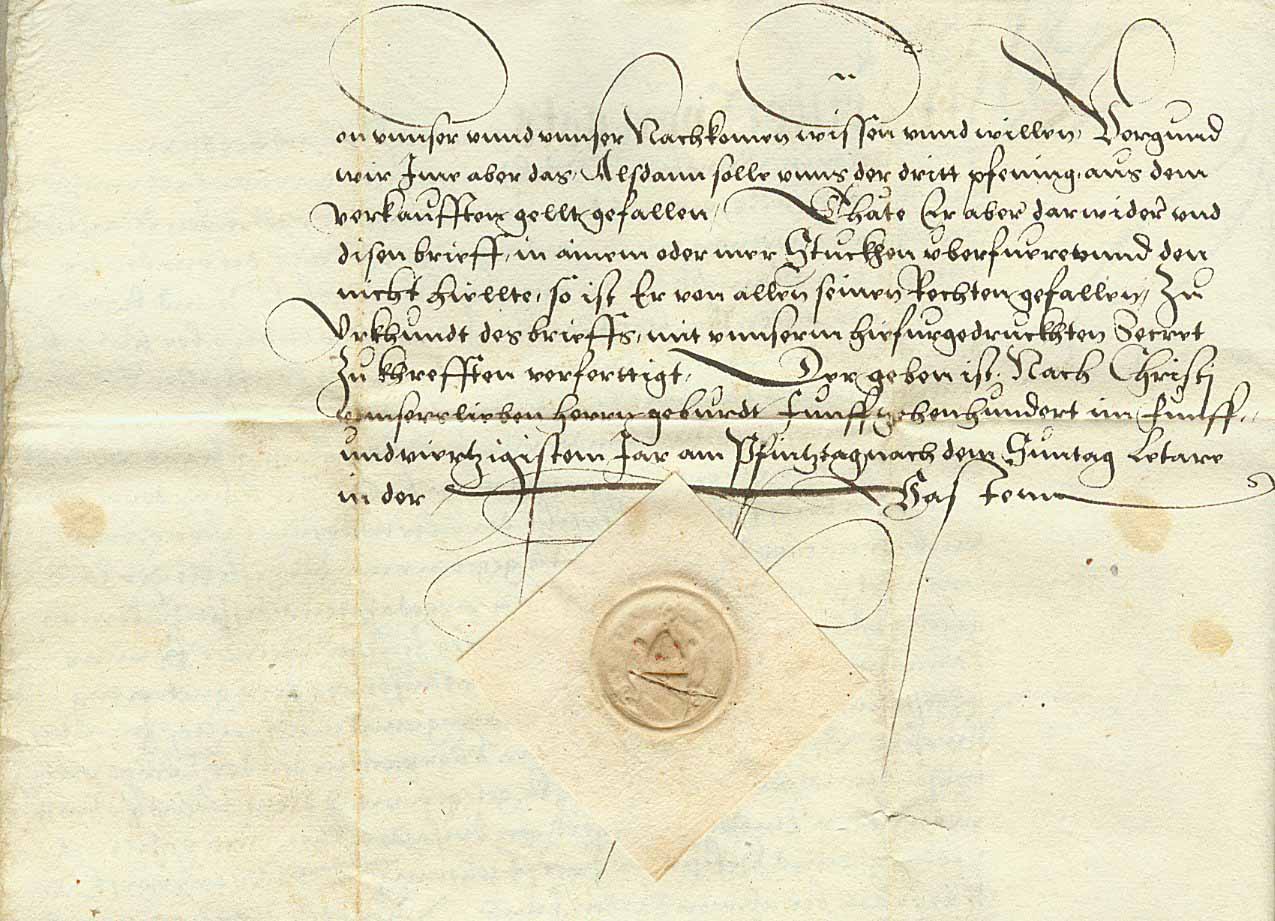 on vnnser vnnd vnnser Nachkomen wissen vnnd willen, Vergund
wir Ime aber das, Alsdann solle vnns der dritt pfening, aus dem
verkaufften gellt gefallen, Thäte Er aber darwider vnd
disen brieff, in ainem oder mer Stuckhen vberfuere vnnd den
nicht hiellte, so ist Er von allen seinen Rechten gefallen, Zu
Vrkhundt des brieffs, mit vnnserm hiefurgedruckhten Secret
Zu khrefften verferttigt, Der geben ist, Nach Christj
vnnsers lieben herrn geburdt Funffzehenhundert im Funff-
undviertzigistem Jar am Pfintztag nach dem Suntag Letare
in der Gastein